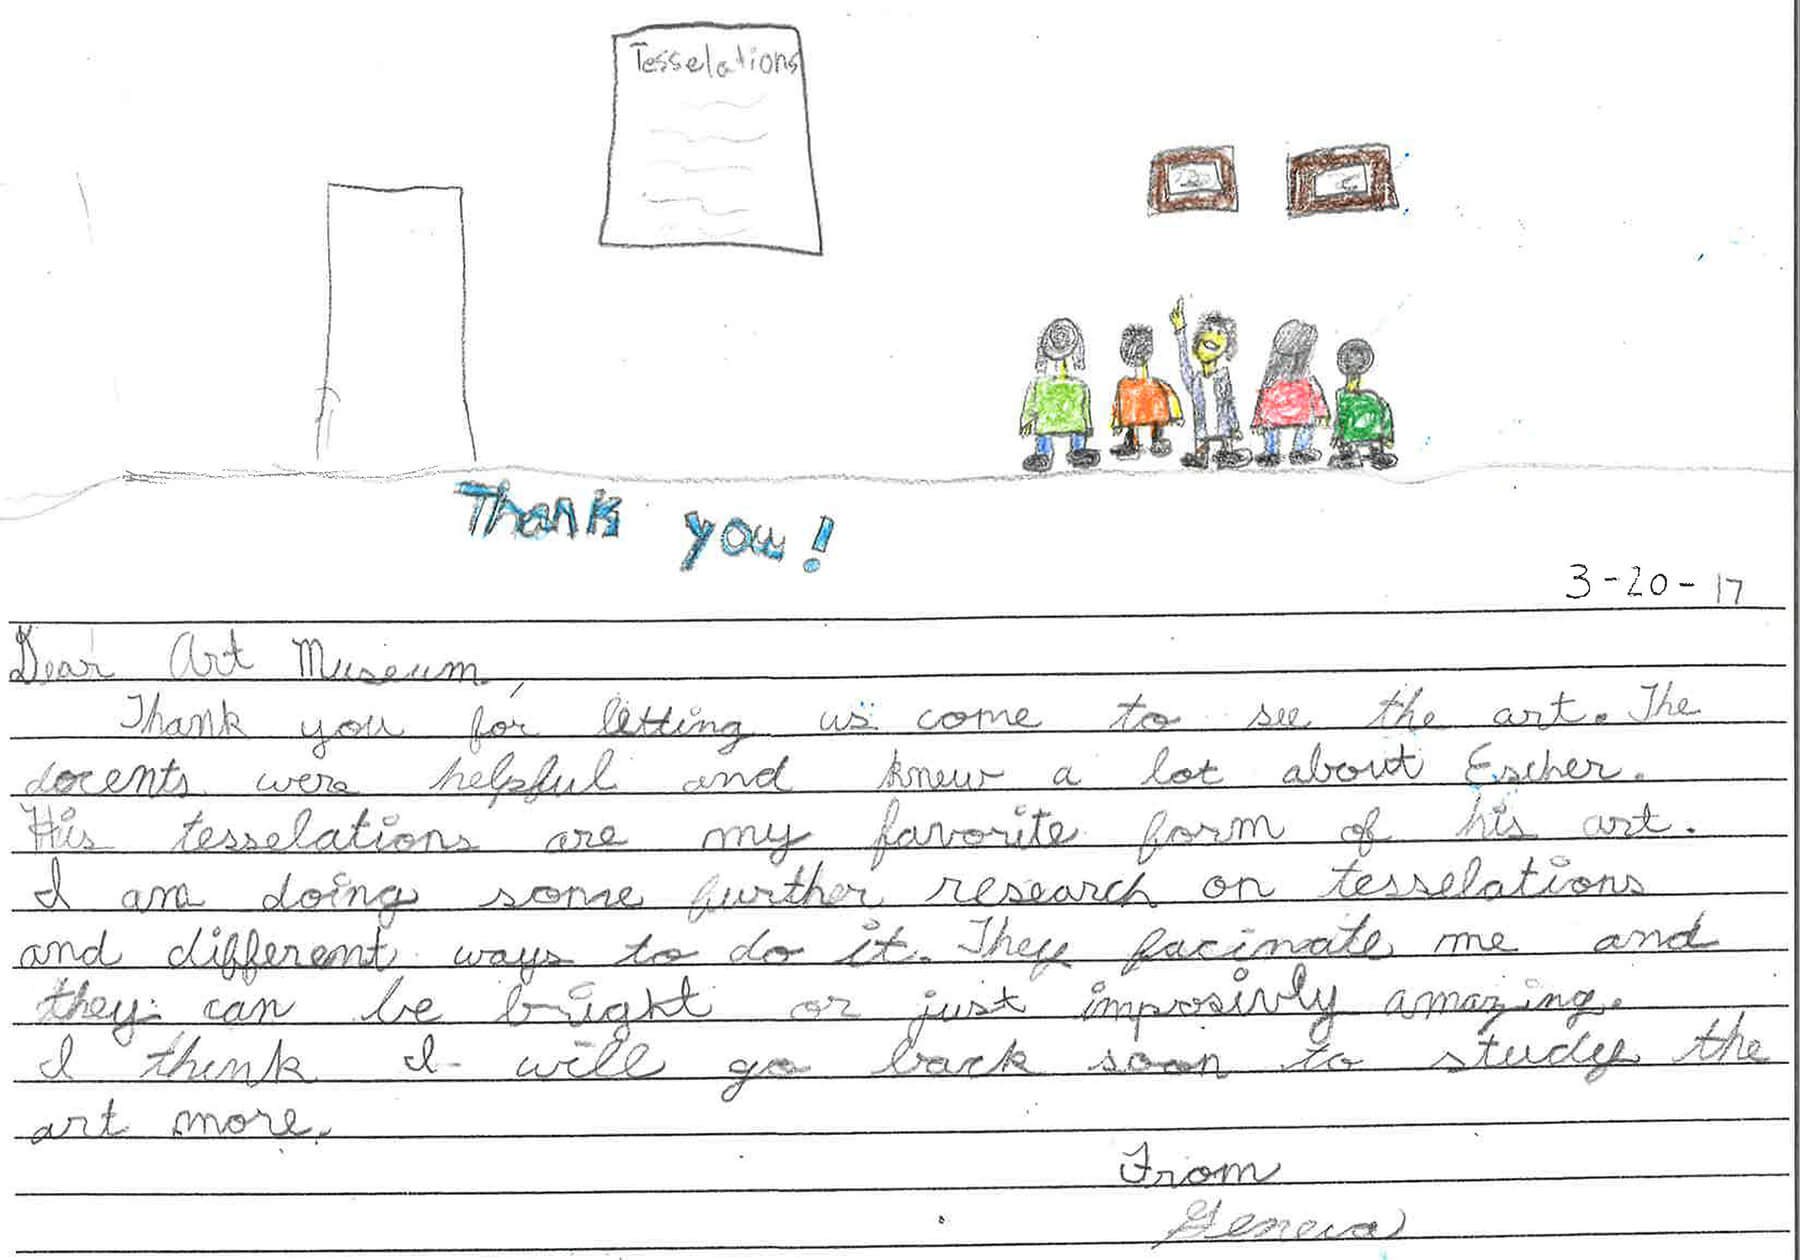 Tesselations
Thank you!
3-20-17
Dear Art Museum,
Thank you for letting us come to see the art. The
docents were helpful and knew a lot about Escher.
His tesselations are my favorite form of his art.
I am doing some further research on tesselations
and different ways to do it. They facinate me and
they can be bright or just imposivly amazing.
I think I will go back soon to study the
art more.
From
Geneva